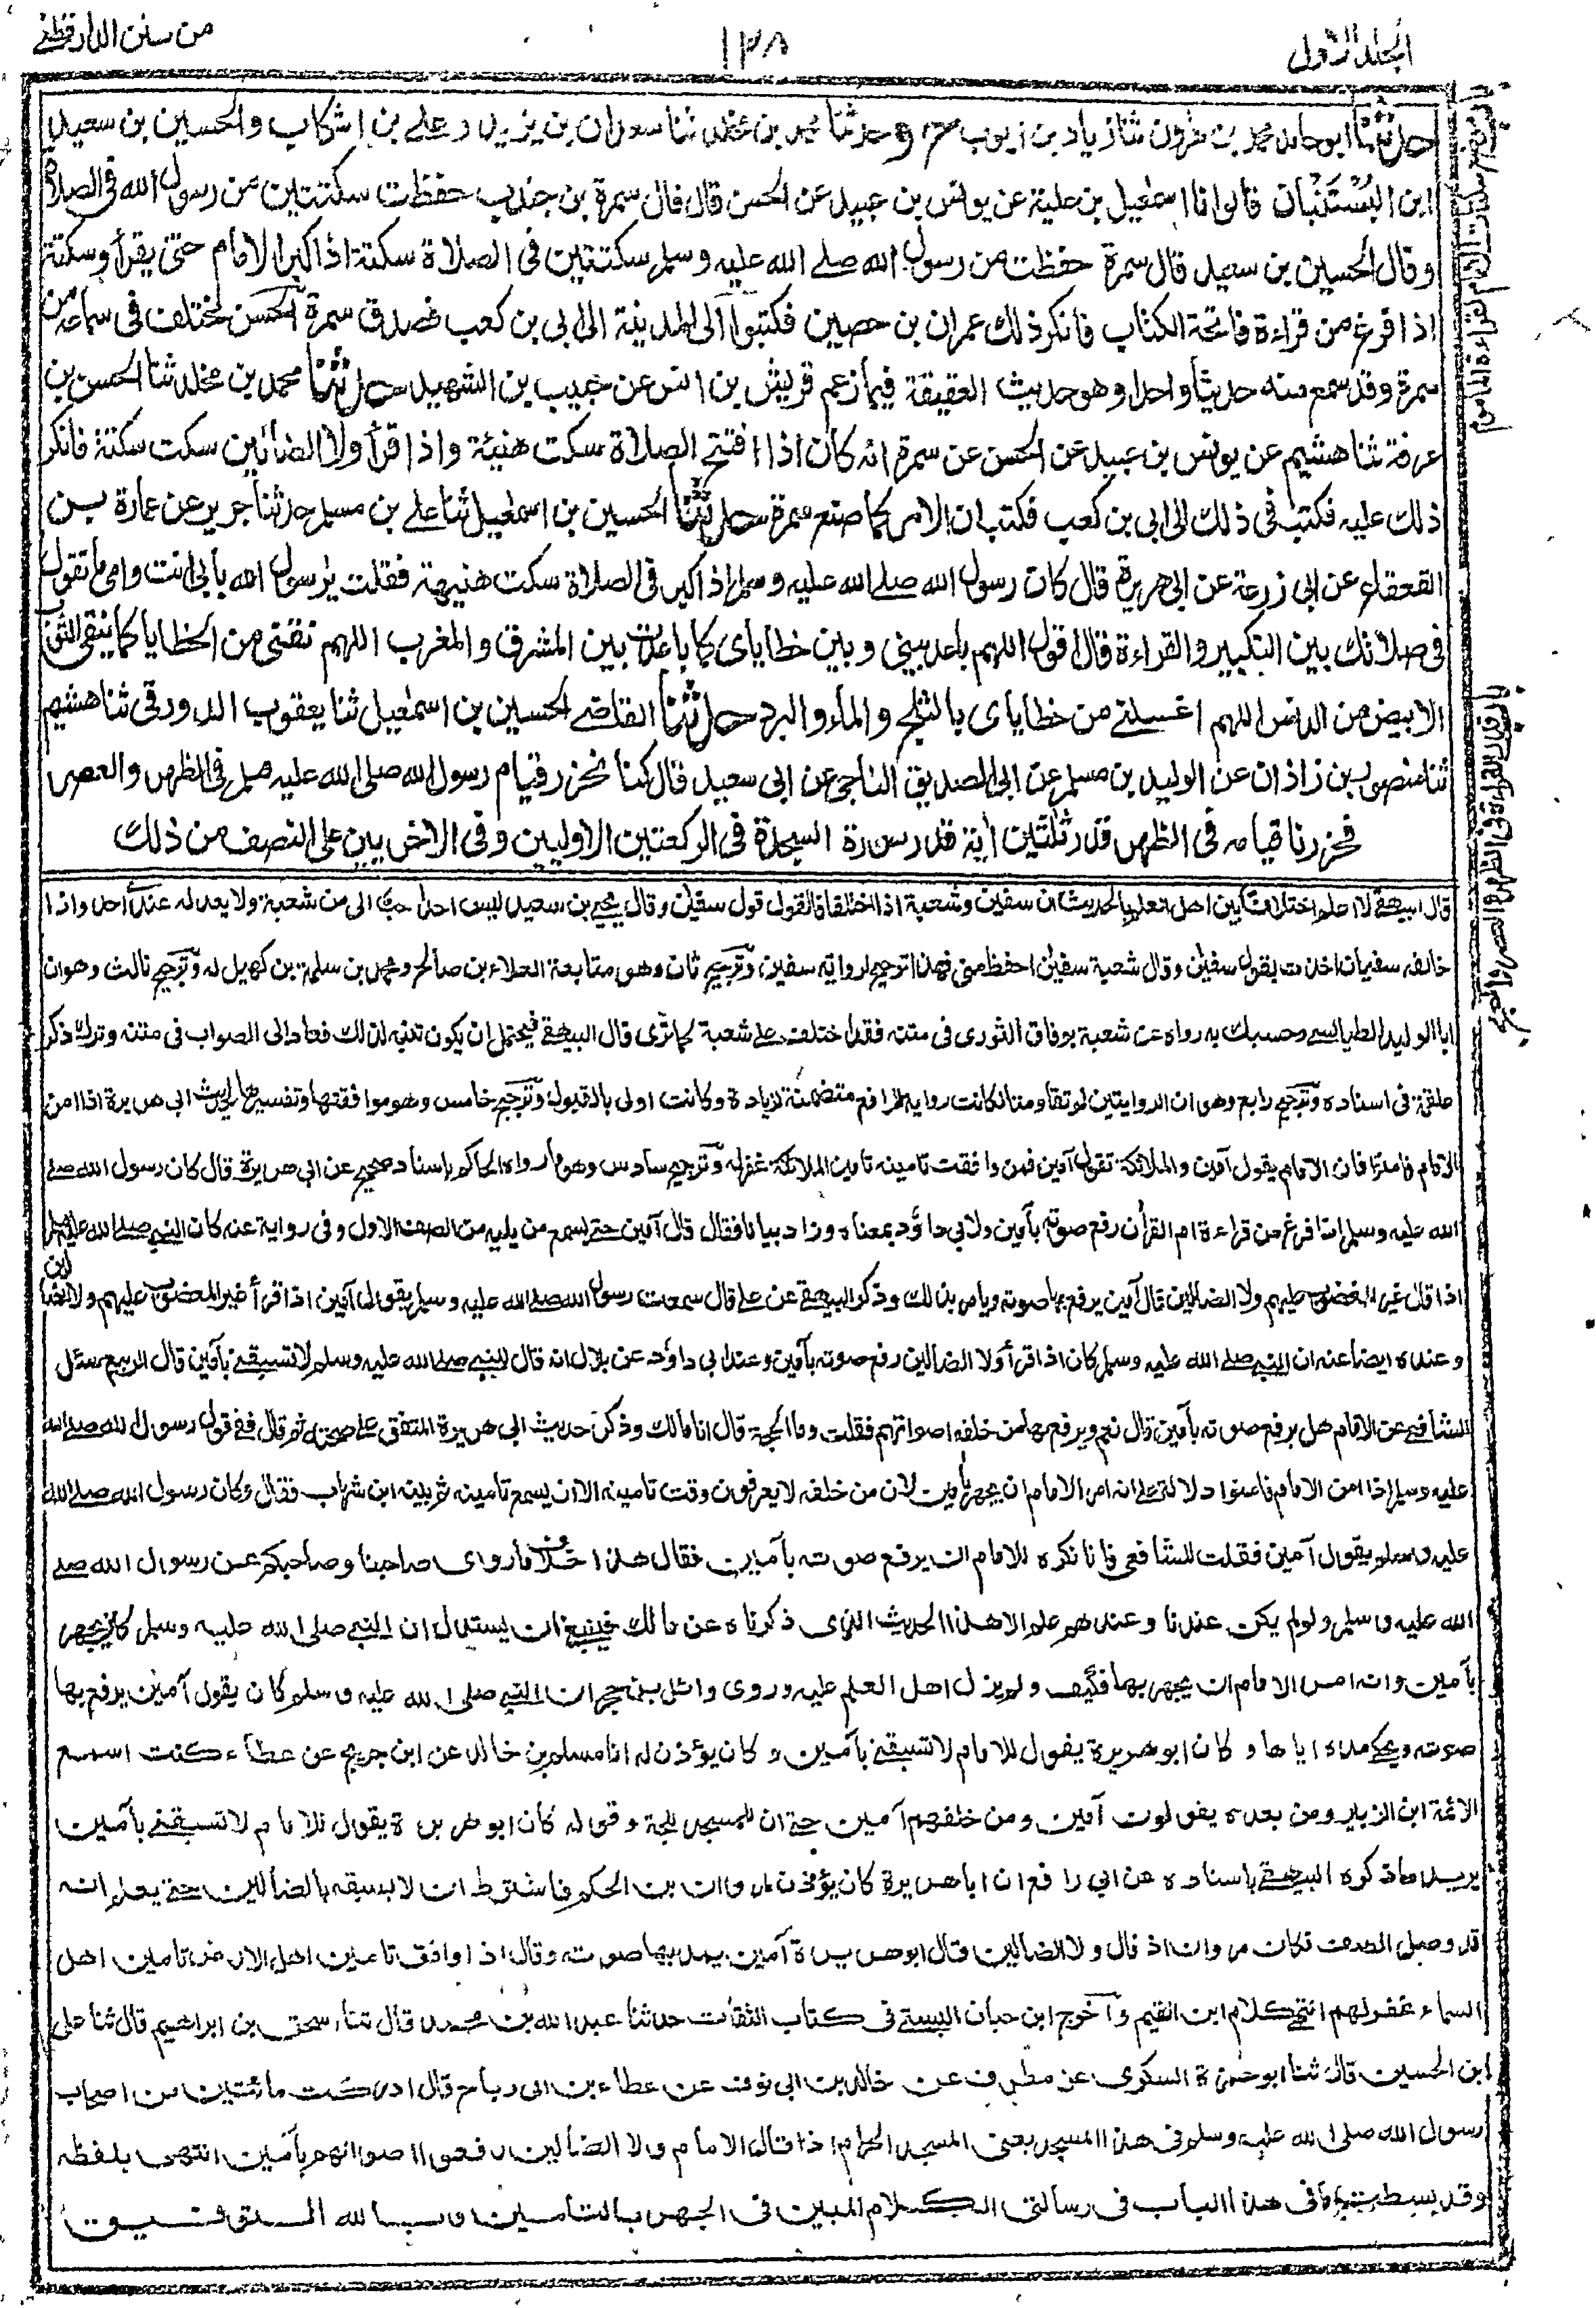 المجلد الاول
١٢٨
من سنن الدارقطنے
حدثنا ابو حامد محمد بن هٰرون ثنا زياد بن ايوب ح وحدثنا محمد بن مخلد ثنا سعدان بن يزيد وعلے بن اشكاب والحسين بن سعيد
ابن البُسْتَنْبان قالوا نا اسمٰعيل بن علية عن يونس بن عبيد عن الحسن قال قال سمرة بن جندب حفظت سكتتين من رسول الله فى الصلاة
وقال الحسين بن سعيد قال سمرة حفظت من رسول الله صلے الله عليه وسلم سكتتين فى الصلاة سكتة اذا كبر الامام حتى يقرأ وسكتة
اذا فرغ من قراءة فاتحة الكتاب فانكر ذلك عمران بن حصين فكتبوا الى المدينة الى ابى بن كعب فصدق سمرة الحسن مختلف فى سماعه من
سمرة وقد سمع منه حديثا واحدا وهو حديث العقيقة فيما زعم قريش بن انس عن حبيب بن الشهيد حدثنا محمد بن مخلد ثنا الحسن بن
عرفة ثنا هشيم عن يونس بن عبيد عن الحسن عن سمرة انه كان اذا افتتح الصلاة سكت هنيئة واذا قرأ ولا الضالين سكت سكتة فانكر
ذلك عليه فكتب فى ذلك الى ابى بن كعب فكتب ان الامر كما صنع سمرة حدثنا الحسين بن اسمٰعيل ثنا علے بن مسلم حدثنا جرير عن عمارة بن
القعقاع عن ابى زرعة عن ابى هريرة قال كان رسول الله صلے الله عليه وسلم اذا كبر فى الصلاة سكت هنيهة فقلت يرسول الله بأبى انت وامى ما تقول
فى صلاتك بين التكبير والقراءة قال اقول اللهم باعد بينى وبين خطاياى كما باعدت بين المشرق والمغرب اللهم نقنى من الخطايا كما ينقى الثوب
الابيض من الدنس اللهم اغسلنے من خطاياى بالثلج والماء والبرد حدثنا القاضے الحسين بن اسمٰعيل ثنا يعقوب الدورقى ثنا هشيم
ثنا منصور بن زاذان عن الوليد بن مسلم عن ابى الصديق الناجى عن ابى سعيد قال كنا نحزر قيام رسول الله صلى الله عليه وسلم فى الظهر والعصر
فحزرنا قيامه فى الظهر قدر ثلثين أية قدر سورة السجدة فى الركعتين الاوليين وفى الاخريين على النصف من ذلك
قال البيهقے لا اعلم اختلافا بين اهل العلم بالحديث ان سفين وشعبة اذا اختلفا فالقول قول سفيٰن وقال يحيے بن سعيد ليس احد احب الى من شعبة ولا يعدله عندى احد واذا
خالفه سفيان اخذت بقول سفيٰن وقال شعبة سفيٰن احفظ منى فهذا ترجيح لرواية سفين وترجيح ثان وهو متابعة العلاء بن صالح ومحمد بن سلمة بن كهيل له وترجيح ثالث وهو ان
ابا الوليد الطيالسے وحسبك به رواه عن شعبة بوفاق الثورى فى متنه فقد اختلف علے شعبة كما ترى قال البيهقے فيحتمل ان يكون تنبه لذلك فعاد الى الصواب فى متنه وترك ذكر
علقمة فى اسناده وترجيح رابع وهو ان الروايتين لو تقاومتا لكانت رواية الرافع متضمنة لزيادة وكانت اولى بالقبول وترجيح خامس وهو موافقتها وتفسيرها لحديث ابى هريرة اذا امن
الامام فامنوا فان الامام يقول آمين والملائكة تقول آمين فمن وافقت تامينه تامين الملائكة غفر له وترجيح سادس وهو ما رواه الحاكم باسناد صحيح عن ابى هريرة قال كان رسول الله صلے
الله عليه وسلم اذا فرغ من قراءة ام القرأن رفع صوته بأمين ولابى داؤد بمعناه وزاد بيانا فقال قال آمين حتے يسمع من يليه من الصف الاول وفى رواية عنه كان النبى صلے الله عليه وسلم
اذا قال غير المغضوب عليهم ولا الضالين قال آمين يرفع بها صوته ويامر بذلك وذكر البيهقے عن علے قال سمعت رسول الله صلے الله عليه وسلم يقول آمين اذا قرأ غير المغضوب عليهم ولا الضالين
وعنده ايضا عنه ان النبے صلے الله عليه وسلم كان اذا قرأ ولا الضالين رفع صوته بأمين وعند ابى داؤد عن بلال انه قال للنبے صلے الله عليه وسلم لا تسبقنے بأمين قال الربيع سئل
الشافعے عن الامام هل يرفع صوته بأمين قال نعم ويرفع بها من خلفه اصواتهم فقلت وما الحجة قال انا مالك وذكر حديث ابى هريرة المتفق علے صحته ثم قال ففى قول رسول الله صلے الله
عليه وسلم اذا امن الامام فامنوا دلالة علے انه امر الامام ان يجهر بأمين لان من خلفه لا يعرفون وقت تامينه الا ان يسمع تامينه ثم بينه ابن شهاب فقال وكان رسول الله صلے الله
عليه وسلم يقول آمين فقلت للشافعى فانا نكره للامام ان يرفع صوته بأمين فقال هذا خلاف ما روى صاحبنا وصاحبكم عن رسول الله صلے
الله عليه وسلم ولو لم يكن عندنا وعندهم علم الا هذا الحديث الذى ذكرناه عن مالك فينبغے ان يستدل ان النبے صلى الله عليه وسلم كان يجهر
بأمين وانه امر الامام ان يجهر بها فكيف ولم يزل اهل العلم عليه وروى وائل بن حجر ان النبے صلى الله عليه وسلم كان يقول آمين يرفع بها
صوته ويحكى مده اياها وكان ابو هريرة يقول للامام لا تسبقنے بأمين وكان يؤذن له انا مسلم بن خالد عن ابن جريج عن عطاء كنت اسمع
الائمة ابن الزبير ومن بعده يقولون آمين ومن خلفهم آمين حتے ان للمسجد للجة وقوله كان ابو هريرة يقول للامام لا تسبقنے بأمين
يريد ما ذكره البيهقے باسناده عن ابى رافع ان ابا هريرة كان يؤذن لمروان بن الحكم فاشترط ان لا يسبقه بالضالين حتے يعلم انه
قد وصل الصف فكان مروان اذ قال ولا الضالين قال ابو هريرة آمين يمد بها صوته وقال اذا وافق تامين اهل الارض تامين اهل
السماء غفر لهم انتهى كلام ابن القيم وأخرج ابن حبان البستے فى كتاب الثقات حدثنا عبد الله بن محمد قال ثنا اسحق بن ابراهيم قال ثنا على
ابن الحسين قال ثنا ابو حمزة السكرى عن مطرف عن خالد بن ابى نوف عن عطاء بن ابى رباح قال ادركت مائتين من اصحاب
رسول الله صلى الله عليه وسلم فى هذا المسجد يعنى المسجد الحرام اذا قال الامام ولا الضالين رفعوا اصواتهم بأمين انتهى بلفظه
وقد بسطت فى هذا الباب فى رسالتى الكلام المبين فى الجهر بالتامين وبالله التوفيق